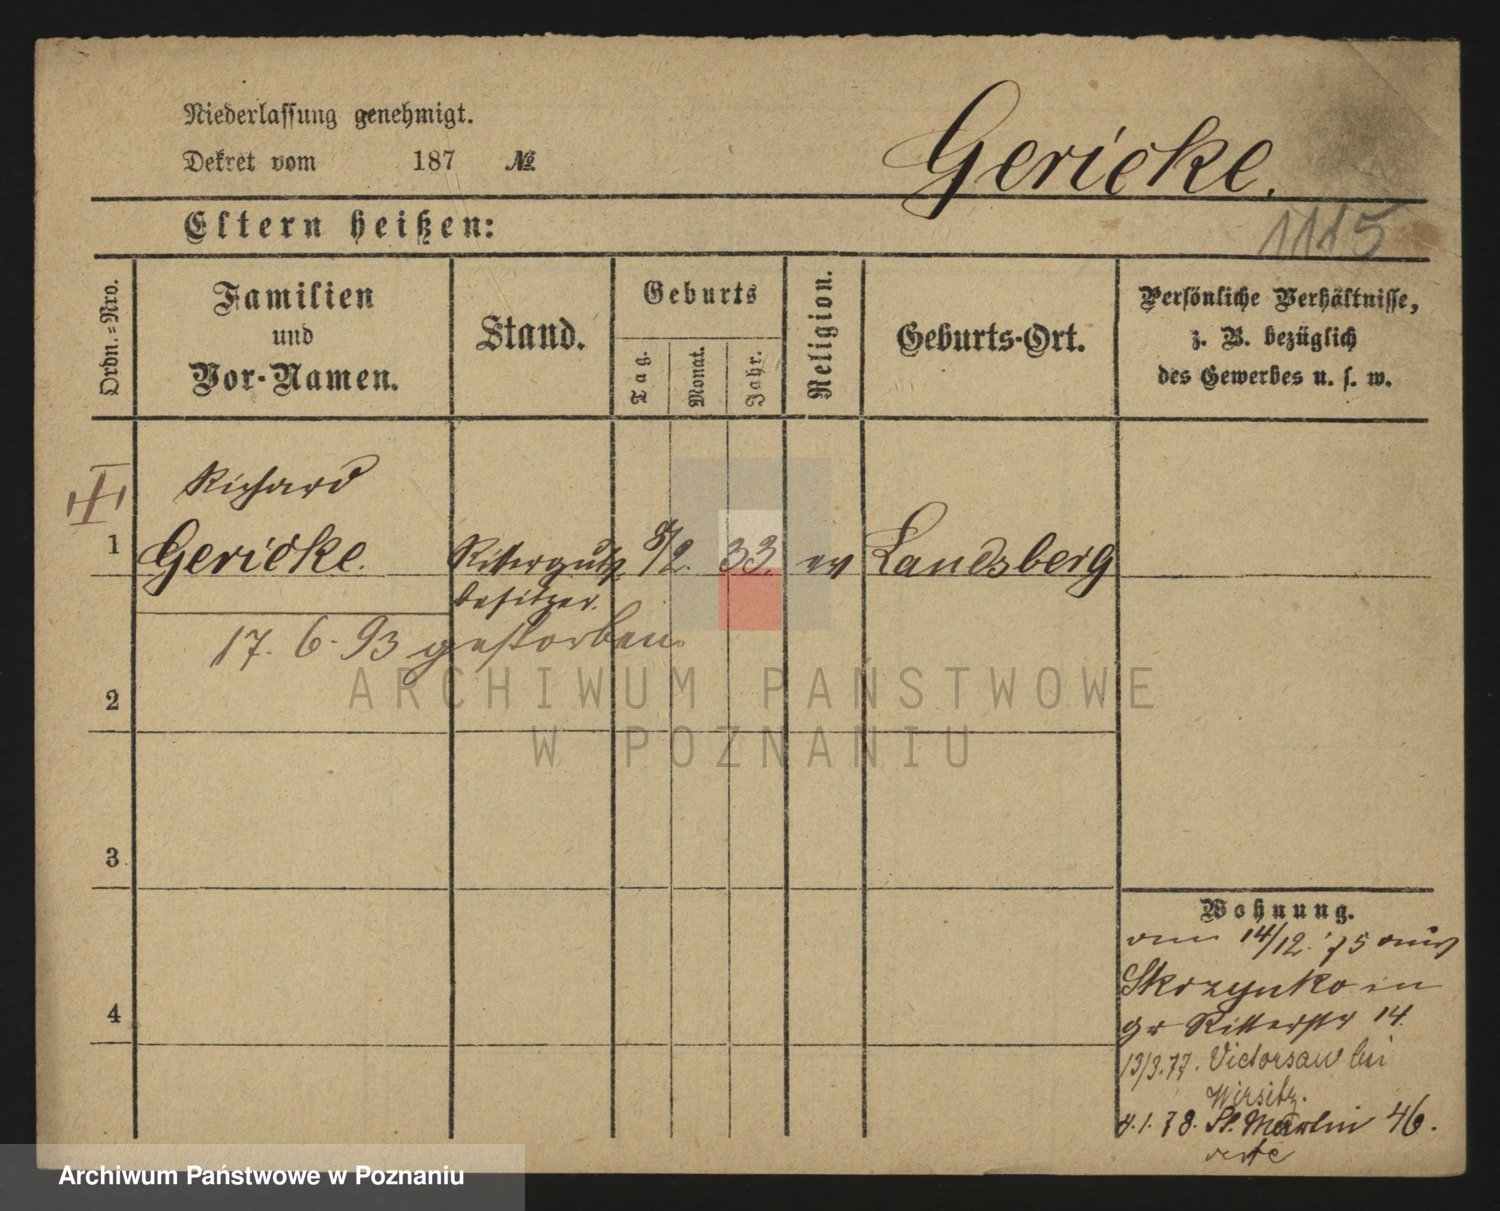 Niederlassung genehmigt.
Dekret vom 187 №
Gericke.
1115
Eltern heißen:
Ordn.=Nro.
Familien
und
Vor-Namen.
Stand.
Geburts
Tag.
Monat.
Jahr.
Religion.
Geburts-Ort.
Persönliche Verhältnisse,
z. B. bezüglich
des Gewerbes u. s. w.
Richard
1 Gericke. Ritterguts 8/2. 33. ev Landsberg
besitzer.
17. 6. 93 gestorben
2
3
4
Wohnung.
14/12. 75 aus
Skrzynko in
gr Ritterstr 14.
13/3. 77. Victorsau bei
Wirsitz.
4. 1. 78. St. Martin 46.
ARCHIWUM PAŃSTWOWE
W POZNANIU
Archiwum Państwowe w Poznaniu